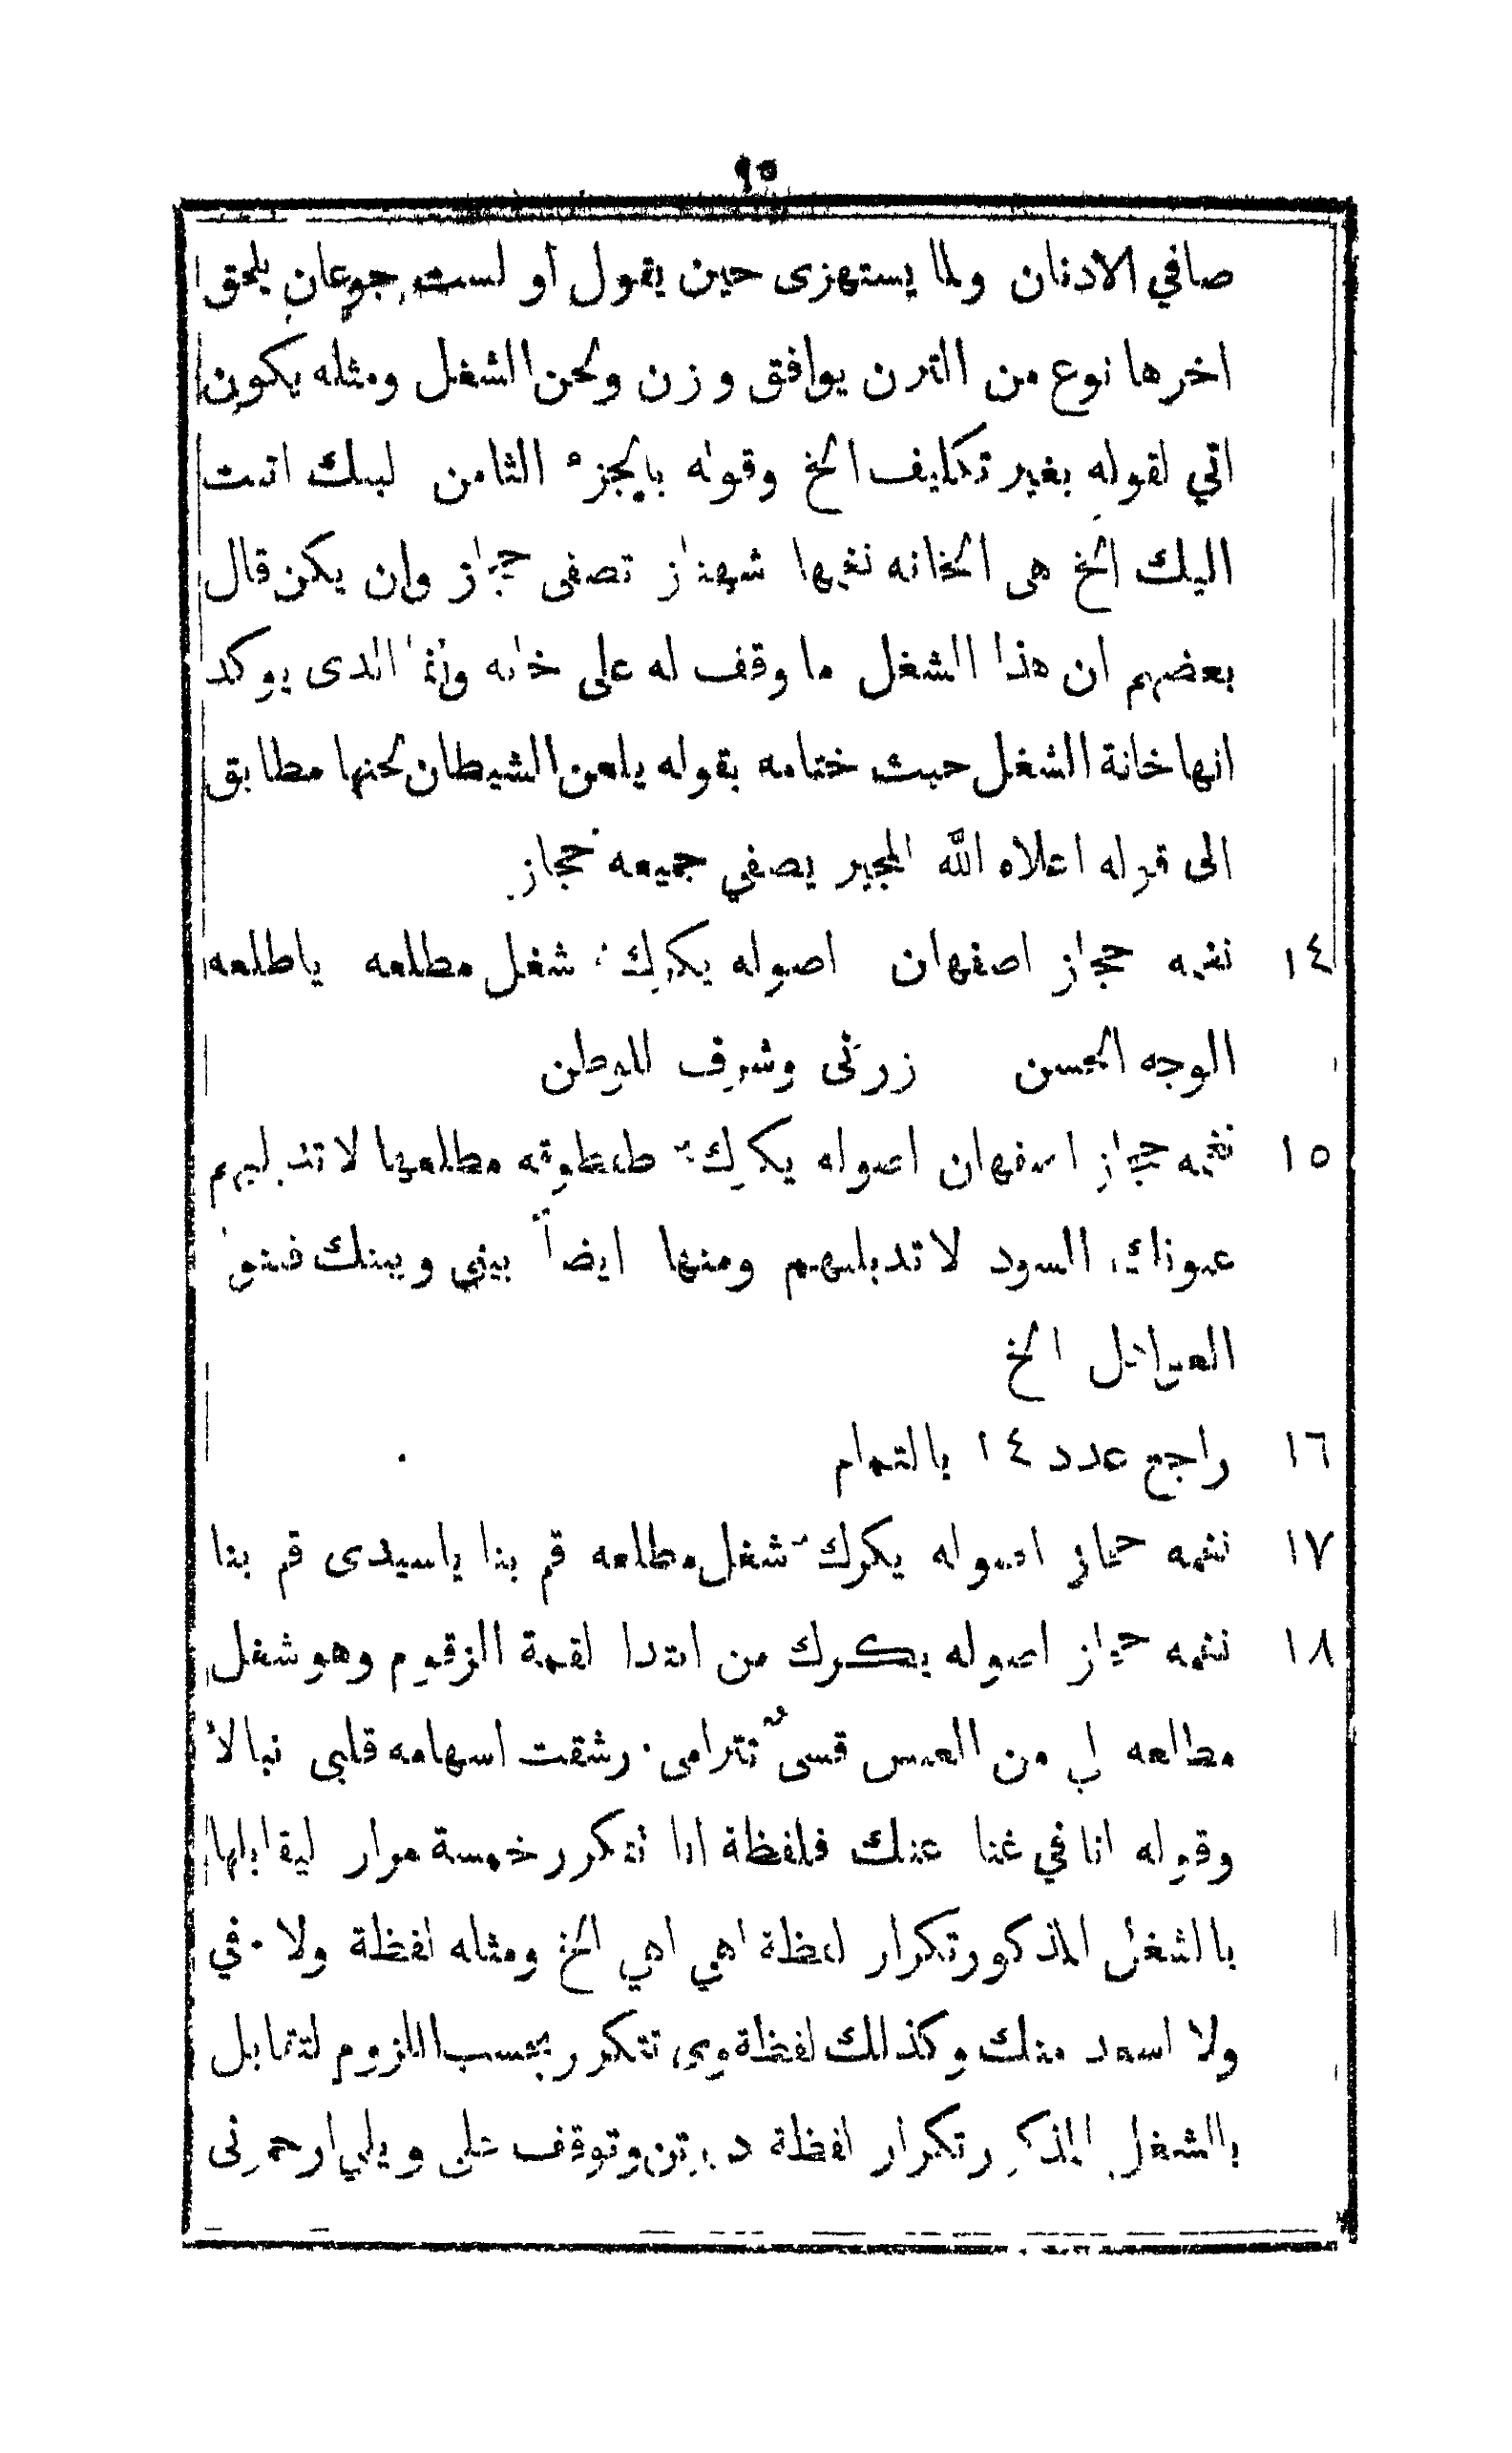 ٩٥
صافي الادنان ولما يستهزى حين يقول أو لست جوعان يلحق
اخرها نوع من الترن يوافق وزن ولحن الشغل ومثله يكون
اتي لقوله بغير تكليف الخ وقوله بالجزء الثامن لبيك اتيت
اليك الخ هى الخانه نغمها شهناز تصفى حجاز وان يكن قال
بعضهم ان هذا الشغل ما وقف له على خانه وانما الدى يوكد
انها خانة الشغل حيث ختامه بقوله يلعن الشيطان لحنها مطابق
الى قوله اعلاه الله المجير يصفي جميعه حجاز
١٤ نغمه حجاز اصفهان اصوله يكرك شغل مطلعه ياطلعه
الوجه الحسن زرنى وشرف للوطن
١٥ نغمه حجاز اصفهان اصوله يكرك طقطوقه مطلعها لا تدبليهم
عيونك السود لا تدبليهم ومنها ايضاً بيني وبينك فتنو
العوازل الخ
١٦ راجع عدد ١٤ بالتمام
١٧ نغمه حجاز اصوله يكرك شغل مطلعه قم بنا ياسيدى قم بنا
١٨ نغمه حجاز اصوله يكرك من ابتدا لقمة الزقوم وهو شغل
مطالعه لي من قسى تترامى رشقت اسهامه قلبي نبالا
وقوله انا في غنا عنك فلفظة انا تتكرر خمسة مرار ليقابلها
بالشغل المذكور تكرار لفظة اهي اهي الخ ومثله لفظة ولا في
ولا اسود منك وكذلك لفظة وى تتكرر بحسب اللزوم لتقابل
بالشغل المذكور تكرار لفظة وتوقف على ويلي ارحمونى